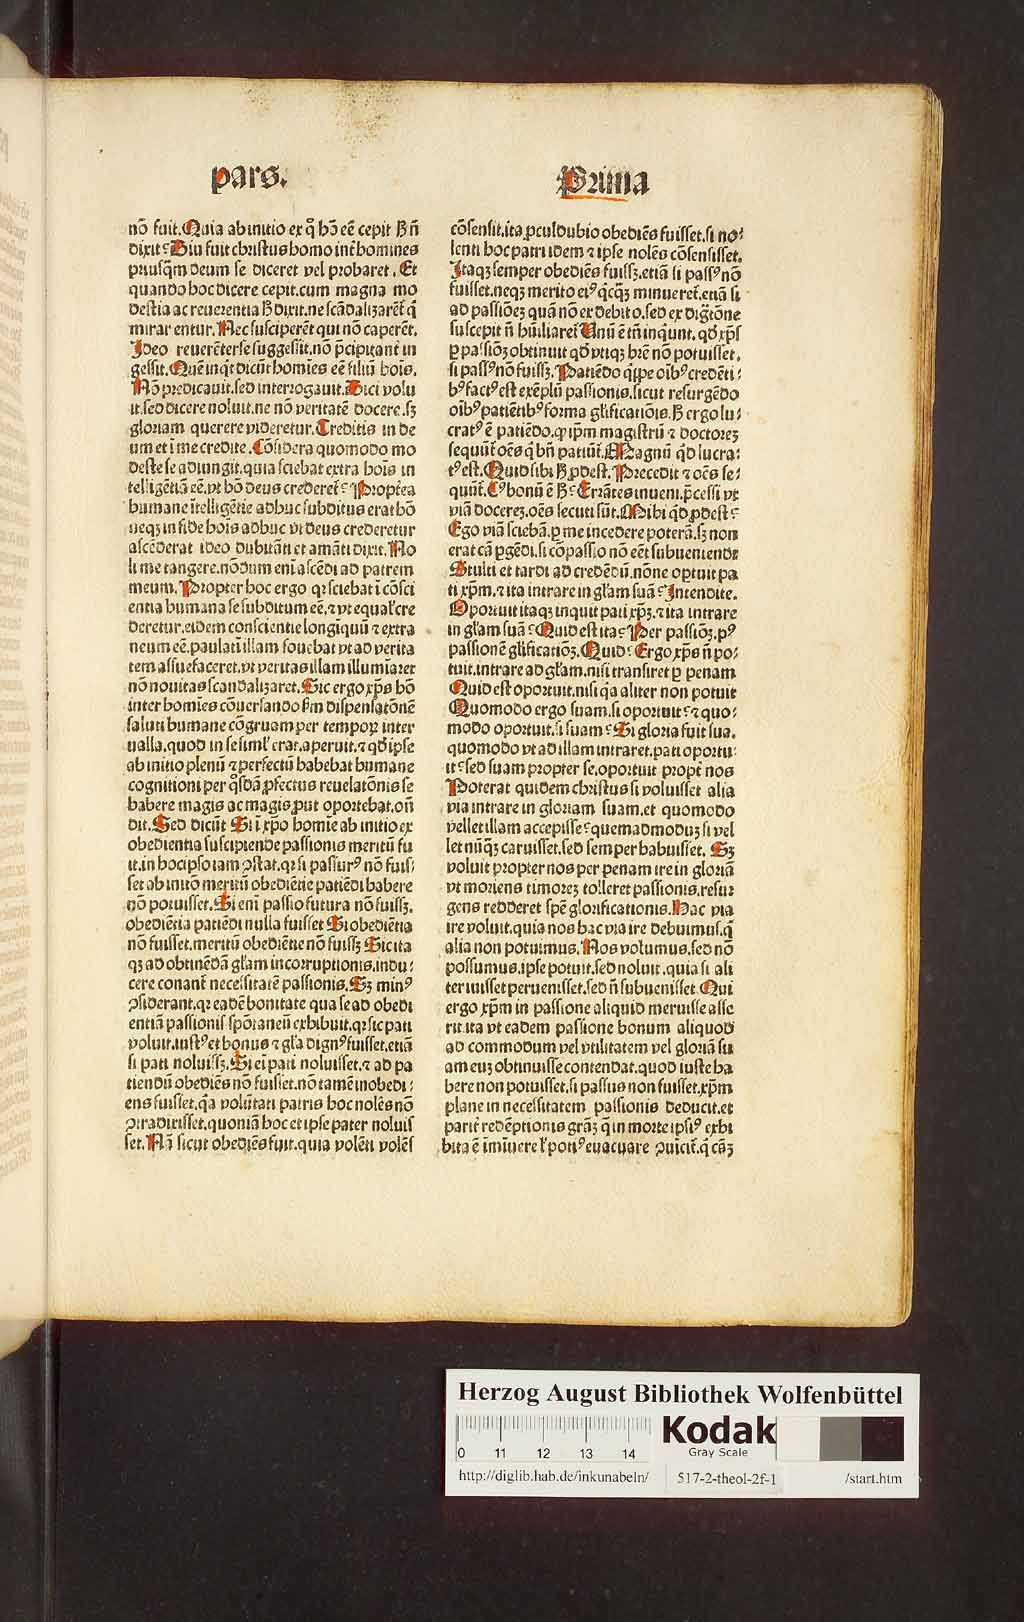 pars.
Prima
nō fuit. Quia ab initio ex qͦ hō eē cepit ħ n̄
dixit? Diu fuit christus homo int̄ homines
priusq̄m deum se diceret vel probaret. Et
quando hoc dicere cepit. cum magna mo
destia ac reuerentia ħ dixit. ne scādalizarēt q̄
mirarentur. Nec susciperēt qui nō caperēt.
Ideo reuerēter se suggessit. nō p̄cipitant̄ in
gessit. Quē inq̄t dicūt homīes eē filiū hoīs.
Nō predicauit. sed interrogauit. Dici volu
it. sed dicere noluit. ne nō veritatē docere. sꝫ
gloriam querere videretur. Creditis in de
um et ī me credite. Cōsidera quomodo mo
deste se adiungit. quia sciebat extra hoīs in
telligētiā eē. vt hō deus crederet̄? Propt̄ea
humane ītelligētie adhuc subditus erat hō
neqꝫ in fide hoīs adhuc vt deus crederetur
ascēderat ideo dubitāti et amāti dixit. No
li me tangere. nōdum enī ascēdi ad patrem
meum. Propter hoc ergo qꝛ sciebat ī cōsci
entia humana se subditum eē. ⁊ vt equal' cre
deretur. eidem conscientie longīquū ⁊ extra
neum eē. paulatī illam fouebat vt ad verita
tem assuefaceret. vt veritas illam illumīaret
nō nouitas scandalizaret. Sic ergo xp̄s hō
inter homīes cōuersando ẜm dispensatōnē
saluti humane cōgruam per tempoꝝ inter
ualla. quod in se siml' erat. aperuit. ⁊ qđ ip̄se
ab initio plenū ⁊ perfectū habebat humane
cognitioni per q̄sdā ꝓfectus reuelatōnis se
habere magis ac magis ꝓut oportebat. on̄
dit. Sed dicūt Si ī xp̄o homīe ab initio ex
obedientia suscipiende passionis meritū fu
it. in hoc ipso iam ꝯstat. qꝛ si passurꝰ nō fuis-
set ab initio meritū obediētie patiēdi habere
nō potuisset. Si enī passio futura nō fuissꝫ.
obediētia patiēdi nulla fuisset Si obediētia
nō fuisset. meritū obediētie nō fuissꝫ Sic ita
qꝫ ad obtinēdā gl'am incorruptionis. indu-
cere conant̄ necessitatē passionis. Sꝫ minꝰ
ꝯsiderant. qꝛ eadē bonitate qua se ad obedi
entiā passionis spōtaneū exhibuit. qꝛ sic pati
voluit. iustꝰ et bonus ⁊ gl'a dignꝰ fuisset. etiā
si pati noluissꝫ. Si eī pati noluisset. ⁊ ad pa
tiendū obediēs nō fuisset. nō tamē inobedi-
ens fuisset. q̄a volūtati patris hoc nolēs nō
ꝯtradixisset. quoniā hoc et ipse pater noluis
set. Nā sicut obediēs fuit. quia volēti volēs
cōsensit. ita ꝓculdubio obediēs fuisset. si no-
lenti hoc patri idem ⁊ ipse nolēs cōsensisset.
Itaqꝫ semper obediēs fuissꝫ. etiā si passꝰ nō
fuisset. neqꝫ merito eiꝰ q̄cq̄ꝫ minueret̄. etiā si
ad passiōeꝫ quā nō ex debito. sed ex digtōne
suscepit n̄ hūiliaret̄ Unū ē tn̄ inq̄unt. qđ xp̄s
ꝑ passiōꝫ obtinuit qđ vtiqꝫ hr̄e nō potuisset.
si passꝰ nō fuissꝫ. Patiēdo q̄ppe oībꝰ credēti-
bꝰ factꝰ est exēplū passionis. sicut resurgēdo
oībꝰ patiētibꝰ forma glīficatiōis. ħ ergo lu-
cratꝰ ē patiēdo. qꝛ ip̄m magistrū ⁊ doctoreꝫ
sequūt̄ oēs q̄ bn̄ patiūt̄. Magnū qđ lucra-
tꝰ est. Quid sibi ħ ꝓdest. Precedit ⁊ oēs se-
quūt̄. Cꝰ bonū ē ħ? Errātes inueni. p̄cessi vt
viā docereꝫ. oēs secuti sūt. Mihi qđ ꝓdest?
Ego viā sciebā. ꝑ me incedere poterā. sꝫ non
erat cā ꝑgēdi. si cōpassio nō eēt subueniendi
Stulti et tardi ad credēdū. nōne optuit pa
ti xp̄m. ⁊ ita intrare in gl'am suā? Intendite.
Oportuit itaqꝫ inquit pati xp̄ꝫ. ⁊ ita intrare
in gl'am suā? Quid est ita? Per passiōꝫ. pꝰ
passionē glīficatiōꝫ. Quid? Ergo xp̄s n̄ po-
tuit. intrare ad gl'am. nisi transiret ꝑ penam
Quid est oportuit. nisi q̄a aliter non potuit
Quomodo ergo suam. si oportuit? ⁊ quo-
modo oportuit. si suam? Si gloria fuit sua.
quomodo vt ad illam intraret. pati oportu-
it? sed suam propter se. oportuit propt̄ nos
Poterat quidem christus si voluisset alia
via intrare in gloriam suam. et quomodo
vellet illam accepisse? quemadmoduꝫ si vel
let nūq̄ꝫ caruisset. sed semper habuisset. Sꝫ
voluit propter nos per penam ire in gloriā
vt moriens timoreꝫ tolleret passionis. resur
gens redderet spē glorificationis. Hac via
ire voluit. quia nos hac via ire debuimus. q̄
alia non potuimus. Nos volumus. sed nō
possumus. ipse potuit. sed noluit. quia si ali
ter iuisset peruenisset. sed n̄ subuenisset. Qui
ergo xp̄m in passione aliquid meruisse asse
rit. ita vt eadem passione bonum aliquod
ad commodum vel vtilitatem vel gloriā su
am euꝫ obtinuisse contendat. quod iuste ha
bere non potuisset. si passus non fuisset. xp̄m
plane in necessitatem passionis deducit. et
parit̄ redēptionis grāꝫ q̄ in morte ipsiꝰ exhi
bita ē īmīuere l' potiꝰ euacuare ꝯuicit̄. q̄ cāꝫ
Herzog August Bibliothek Wolfenbüttel
Kodak
Gray Scale
0 11 12 13 14
http://diglib.hab.de/inkunabeln/ 517-2-theol-2f-1 /start.htm